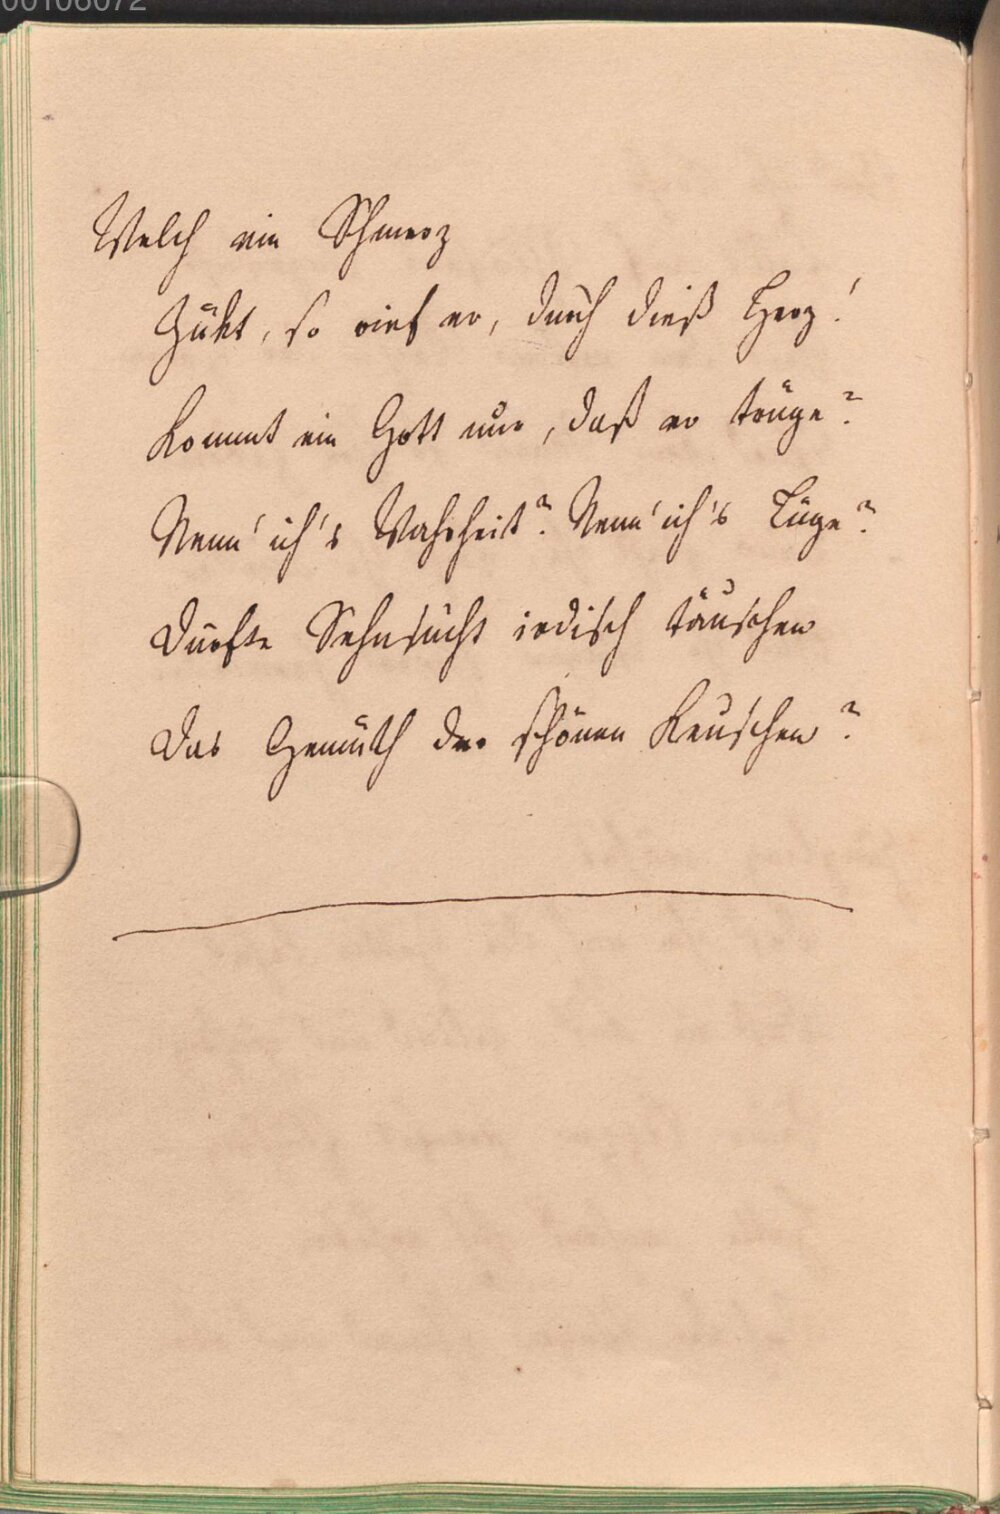 00106072
Welch ein Schmerz
Zükt, so rief er, durch dieß Herz!
Kommt ein Gott nur, daß er trüge?
Nenn' ich's Wahrheit? Nenn' ich's Lüge?
Durfte Sehnsucht irdisch täuschen
Das Gemüth der schönen Keuschen?